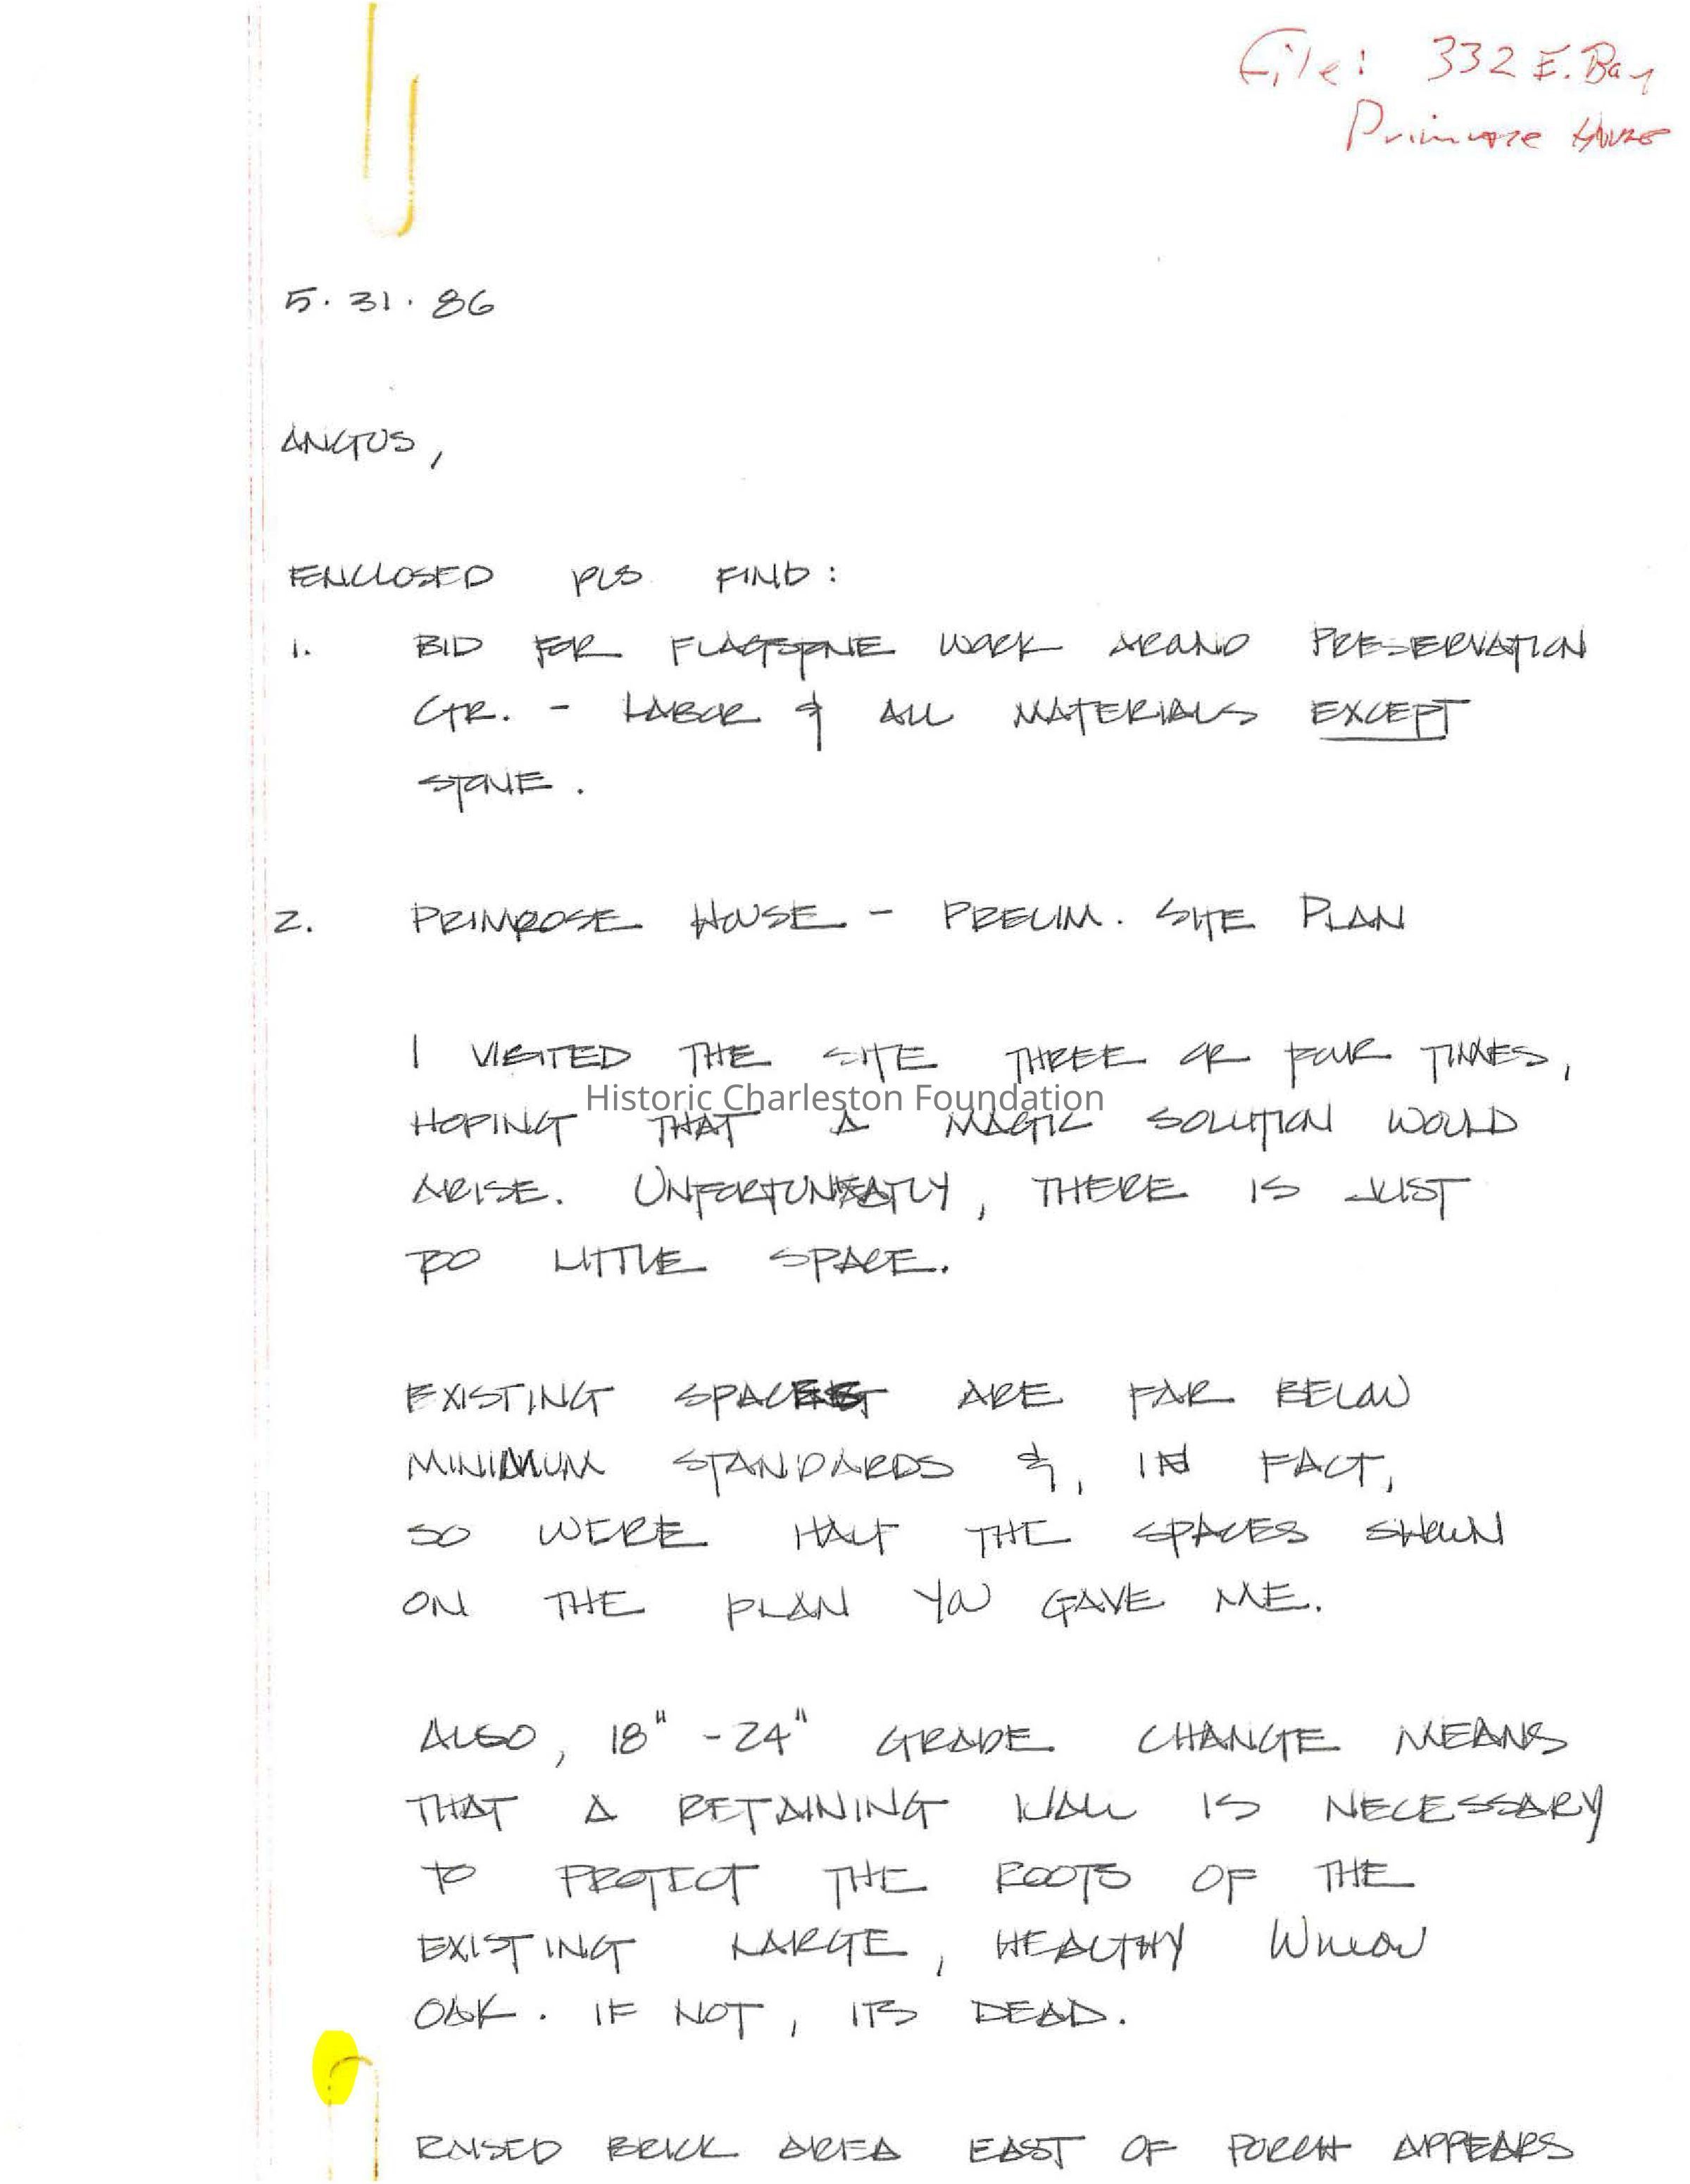 File: 332 E. Bay
Primrose House
5.31.86
ANGUS,
ENCLOSED PLS FIND:
1. BID FOR FLAGSTONE WORK AROUND PRESERVATION
CTR. - LABOR & ALL MATERIALS EXCEPT
STONE.
2. PRIMROSE HOUSE - PRELIM. SITE PLAN
I VISITED THE SITE THREE OR FOUR TIMES,
Historic Charleston Foundation
HOPING THAT A MAGIC SOLUTION WOULD
ARISE. UNFORTUNATLY, THERE IS JUST
TOO LITTLE SPACE.
EXISTING SPACES ARE FAR BELOW
MINIMUM STANDARDS &, IN FACT,
SO WERE HALF THE SPACES SHOWN
ON THE PLAN YOU GAVE ME.
ALSO, 18" - 24" GRADE CHANGE MEANS
THAT A RETAINING WALL IS NECESSARY
TO PROTECT THE ROOTS OF THE
EXISTING LARGE, HEALTHY WILLOW
OAK. IF NOT, ITS DEAD.
RAISED BRICK AREA EAST OF PORCH APPEARS